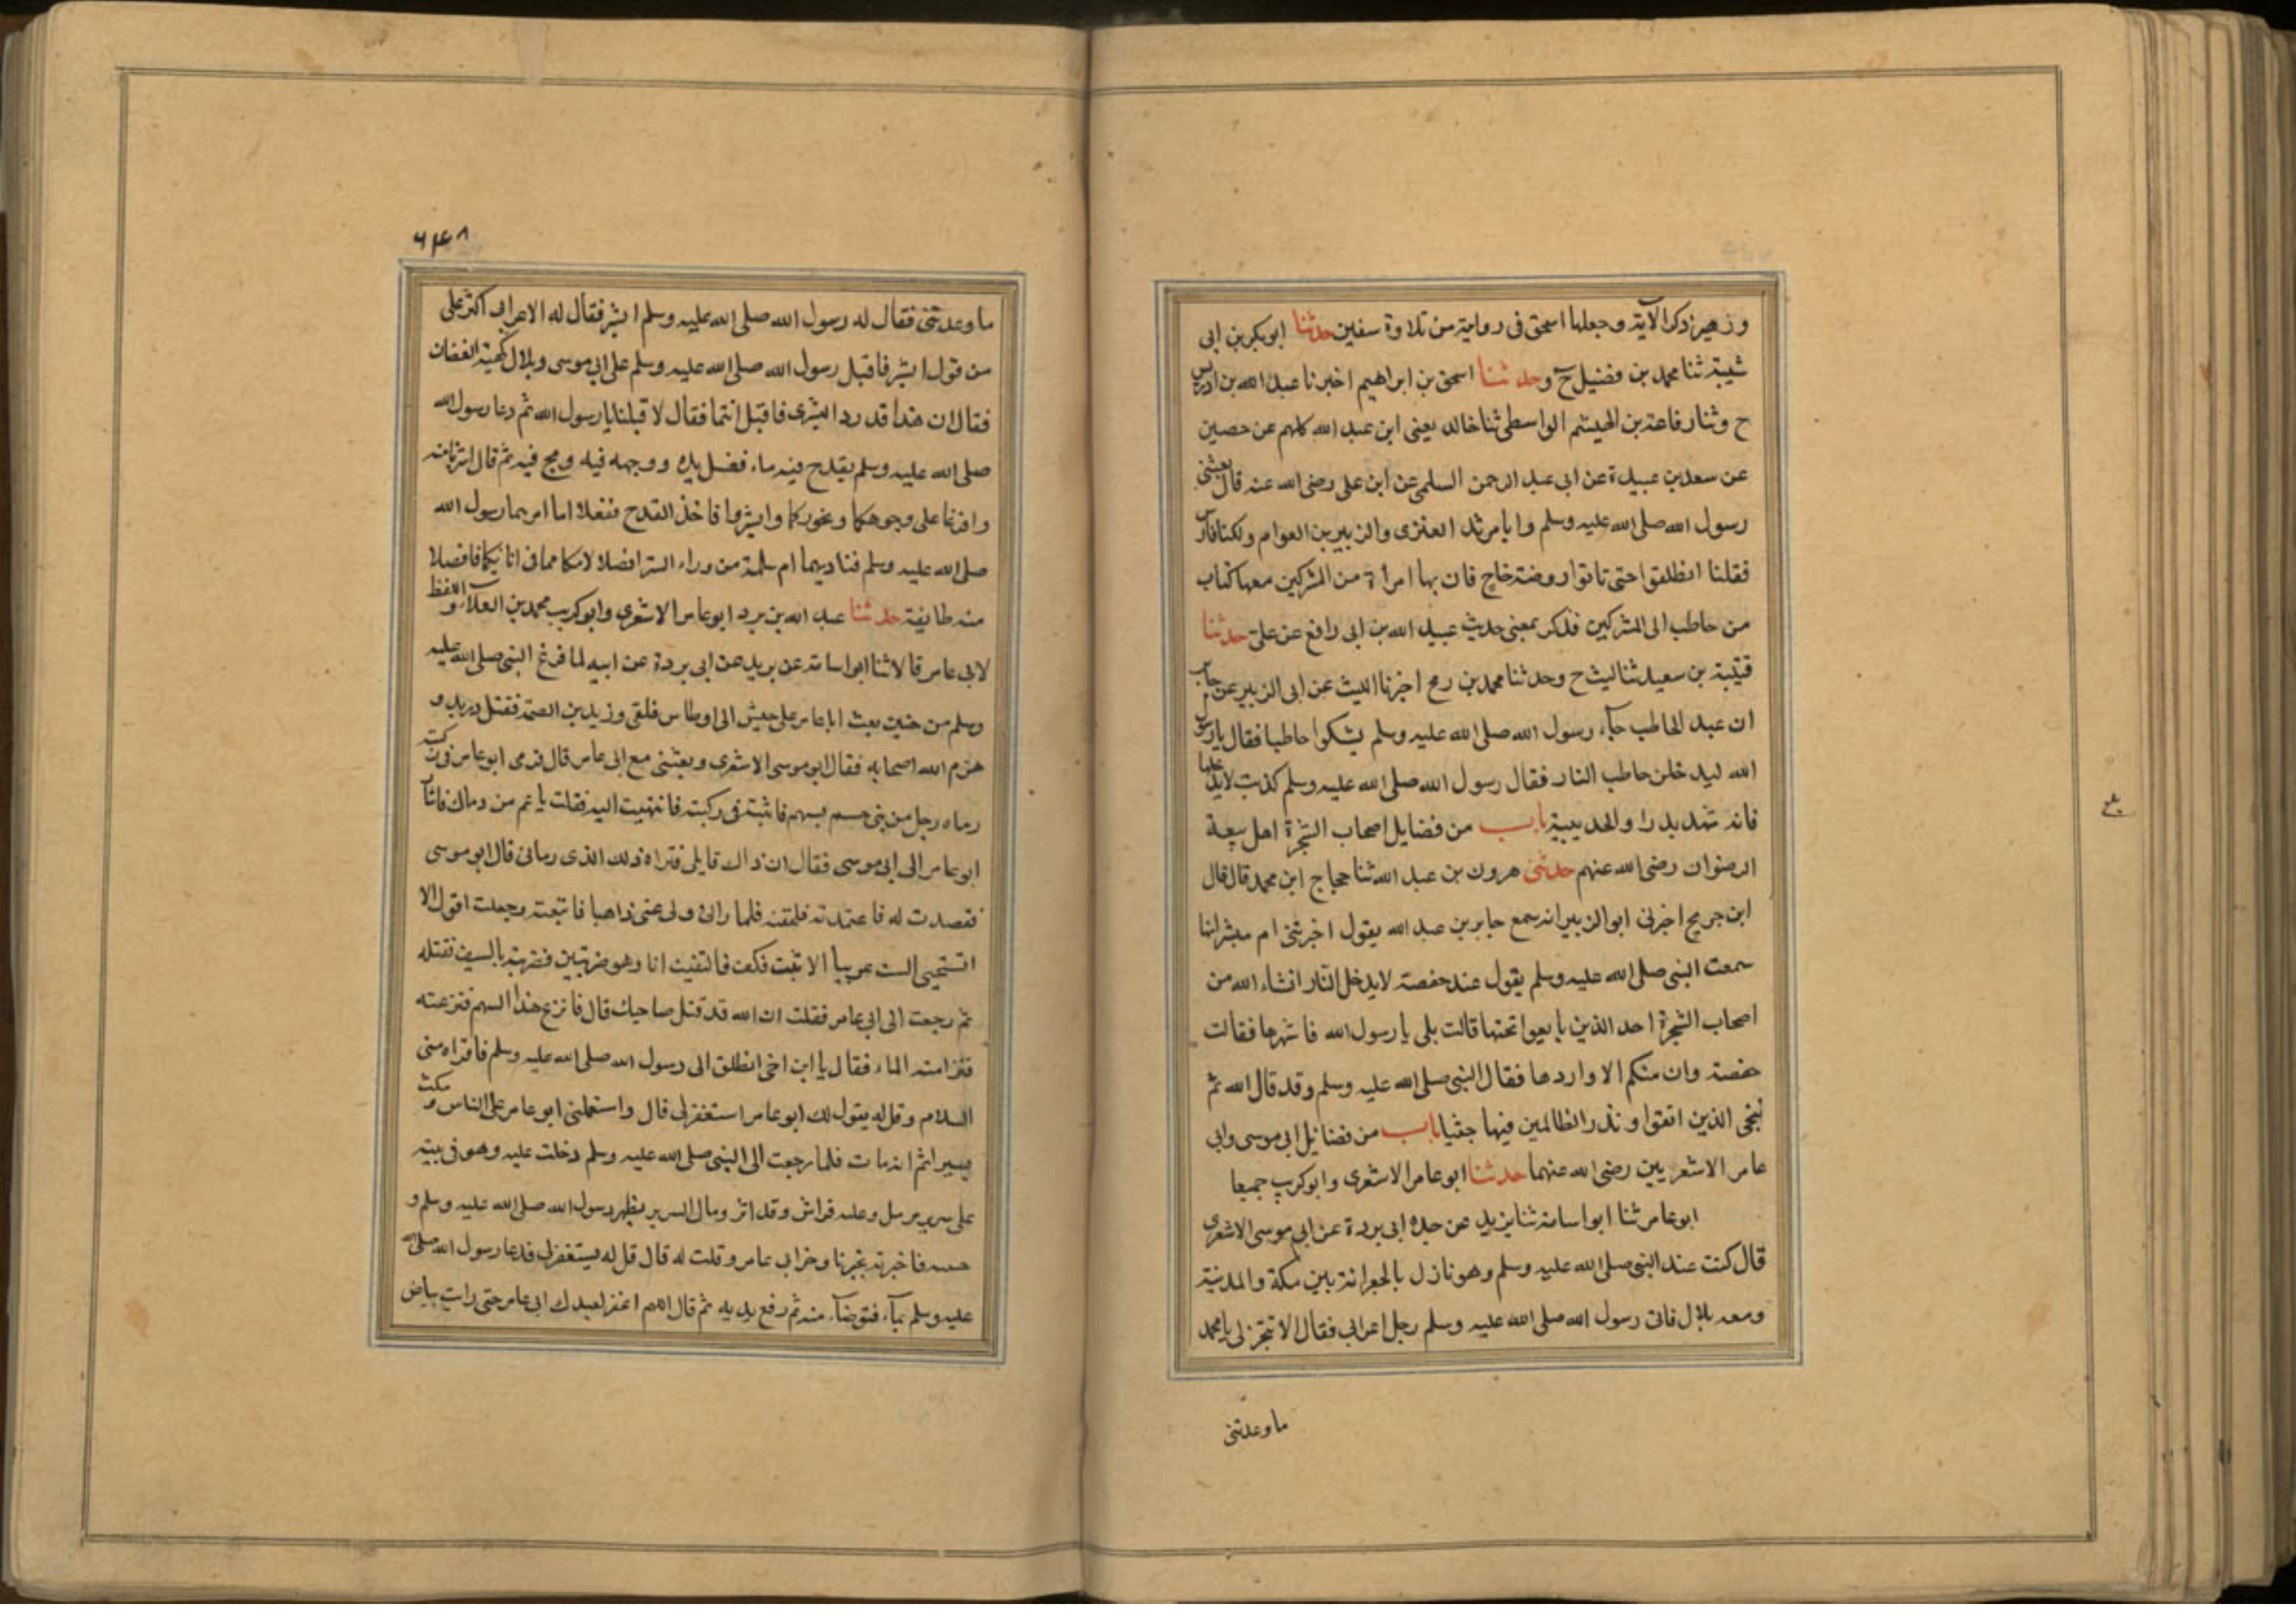 وزهير ذكر الآية وجعلها اسحق فى رواية من تلاوة سفين حدثنا ابو بكر بن ابى
شيبة ثنا محمد بن فضيل ح وحدثنا اسحق بن ابراهيم اخبرنا عبد الله بن ادريس
ح وثنا رفاعة بن الهيثم الواسطى ثنا خالد يعنى ابن عبد الله كلهم عن حصين
عن سعد بن عبيدة عن ابى عبد الرحمن السلمى عن ابن على رضى الله عنه قال بعثنى
رسول الله صلى الله عليه وسلم وابا مرثد العنزى والزبير بن العوام وكلنا فارس
فقلنا انطلقوا حتى تاتوا روضة خاخ فان بها امراة من المشركين معها كتاب
من حاطب الى المشركين فذكر بمعنى حديث عبيد الله بن ابى رافع عن على حدثنا
قتيبة بن سعيد ثنا ليث ح وحدثنا محمد بن رمح اخبرنا الليث عن ابى الزبير عن جابر
ان عبد الحاطب جآء رسول الله صلى الله عليه وسلم يشكوا حاطبا فقال يا رسول
الله ليدخلن حاطب النار فقال رسول الله صلى الله عليه وسلم كذبت لا يدخلها
فانه شهد بدرا والحديبية باب من فضايل اصحاب الشجرة اهل بيعة
الرضوان رضى الله عنهم حدثنى هرون بن عبد الله ثنا حجاج ابن محمد قال قال
ابن جريج اخبرنى ابو الزبير انه سمع جابر بن عبد الله يقول اخبرتنى ام مبشر انها
سمعت النبى صلى الله عليه وسلم يقول عند حفصة لا يدخل النار انشاء الله من
اصحاب الشجرة احد الذين بايعوا تحتها قالت بلى يا رسول الله فانتهرها فقالت
حفصة وان منكم الا واردها فقال النبى صلى الله عليه وسلم وقد قال الله ثم
ننجى الذين اتقوا ونذر الظالمين فيها جثيا باب من فضائل ابى موسى وابى
عامر الاشعريين رضى الله عنهما حدثنا ابو عامر الاشعرى وابو كريب جميعا
ابو عامر ثنا ابو اسامة ثنا يزيد عن جده ابى بردة عن ابى موسى الاشعرى
قال كنت عند النبى صلى الله عليه وسلم وهو نازل بالجعرانة بين مكة والمدينة
ومعه بلال فاتى رسول الله صلى الله عليه وسلم رجل اعرابى فقال الا تنجز لى يا محمد
ما وعدتنى
٦٤٨
ما وعدتنى فقال له رسول الله صلى الله عليه وسلم ابشر فقال له الاعرابى اكثر على
من قول ابشر فاقبل رسول الله صلى الله عليه وسلم على ابى موسى وبلال كهيئة الغضان
فقال ان هذا قد رد البشرى فاقبل انتما فقال لا قبلنا يا رسول الله ثم دعا رسول الله
صلى الله عليه وسلم بقدح فيه ماء فغسل يده ووجهه فيه ومج فيه ثم قال اشربا منه
وافرغا على وجوهكما ونحوركما وابشرا فاخذ القدح ففعلا ما امرهما رسول الله
صلى الله عليه وسلم فناديهما ام سلمة من وراء الستر افضلا لامكما مما فى انائيكما فافضلا
منه طايفة حدثنا عبد الله بن برد ابو عامر الاشعرى وابو كريب محمد بن العلآء واللفظ
لابى عامر قالا ثنا ابو اسامة عن بريد عن ابى بردة عن ابيه لما فرغ النبى صلى الله عليه
وسلم من حنين بعث ابا عامر على جيش الى اوطاس فلقى وزيد بن الصمة فقتل دريد و
هزم الله اصحابه فقال ابو موسى الاشعرى وبعثنى مع ابى عامر قال فرمى ابو عامر فى ركبته
رماه رجل من بنى جسم بسهم فاثبته فى ركبته فانتهيت اليه فقلت يا عم من رماك فاشار
ابو عامر الى ابى موسى فقال ان ذاك قايلى فتراه ذلك الذى رمانى قال ابو موسى
فقصدت له فاعتمدته فلحقته فلما رانى ولى عنى ذاهبا فاتبعته وجعلت اقول الا
تستحيى الست عربيا الا تثبت فكف فالتقيت انا وهو ضربتين فضربته بالسيف فقتله
ثم رجعت الى ابى عامر فقلت ان الله قد قتل صاحبك قال فانزع هذا السهم فنزعته
فنزا منه الماء فقال يا ابن اخى انطلق الى رسول الله صلى الله عليه وسلم فاقراه منى
السلام وقل له يقول لك ابو عامر استغفر لى قال واستعملنى ابو عامر على الناس ومكث
يسيرا ثم انه مات فلما رجعت الى النبى صلى الله عليه وسلم دخلت عليه وهو فى بيته
على سرير مرسل وعليه فراش وقد اثر رمال السرير بظهر رسول الله صلى الله عليه وسلم و
جنبيه فاخبرته بخبرنا وخبر ابى عامر وقلت له قال قل له يستغفر لى فدعا رسول الله صلى الله
عليه وسلم بمآء فتوضآء منه ثم رفع يديه ثم قال اللهم اغفر لعبدك ابى عامر حتى رايت بياض